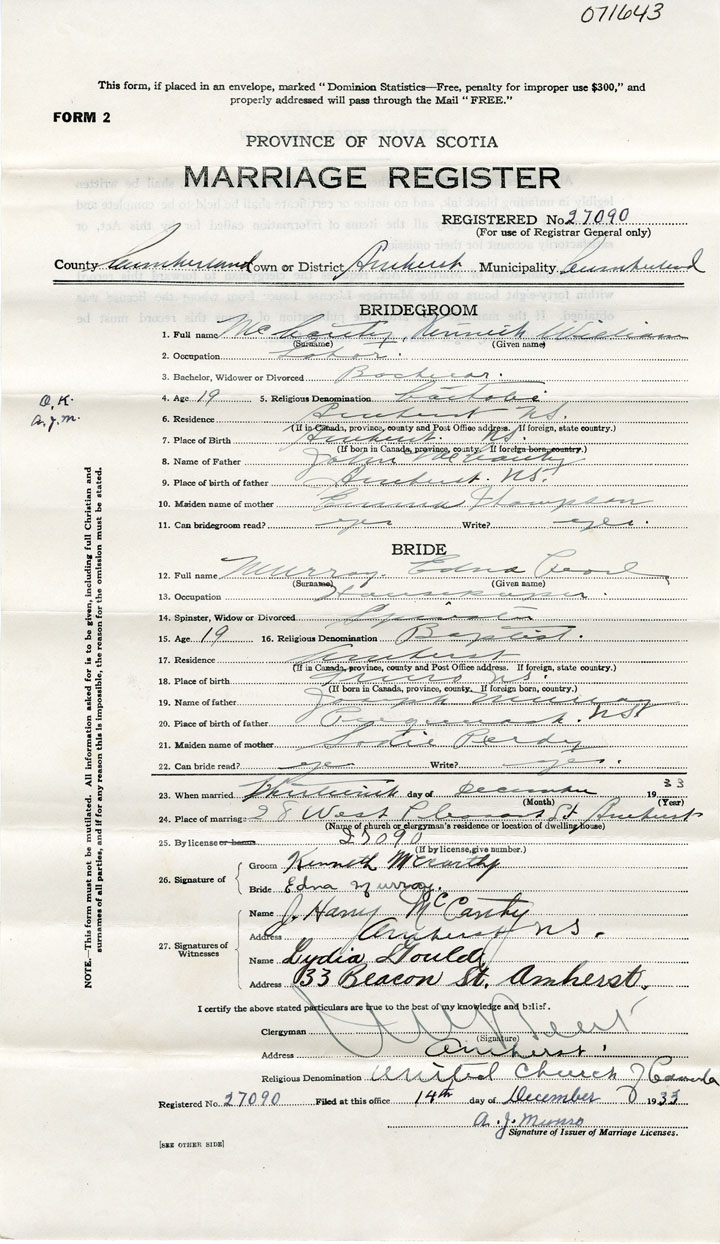 071643
This form, if placed in an envelope, marked "Dominion Statistics—Free, penalty for improper use $300," and
properly addressed will pass through the Mail "FREE."
FORM 2
PROVINCE OF NOVA SCOTIA
MARRIAGE REGISTER
REGISTERED No. 27090
(For use of Registrar General only)
County Cumberland Town or District Amherst Municipality Cumberland
BRIDEGROOM
1. Full name McCarthy, Kenneth William
(Surname) (Given name)
2. Occupation Labor.
3. Bachelor, Widower or Divorced Bachelor.
O.K.
A.J.M.
4. Age 19 5. Religious Denomination Catholic
6. Residence Amherst N.S.
(If in Canada, province, county and Post Office address. If foreign, state country.)
7. Place of Birth Amherst. N.S.
(If born in Canada, province, county. If foreign born, country.)
8. Name of Father John McCarthy
9. Place of birth of father Amherst. N.S.
10. Maiden name of mother Emma Thompson
11. Can bridegroom read? yes Write? yes.
BRIDE
12. Full name Murray. Edna Pearl
(Surname) (Given name)
13. Occupation Housekeeper.
14. Spinster, Widow or Divorced Spinster
15. Age 19 16. Religious Denomination Baptist.
17. Residence Amherst
(If in Canada, province, county and Post Office address. If foreign, state country.)
18. Place of birth Truro N.S.
(If born in Canada, province, county. If foreign born, country.)
19. Name of father Joseph Murray
20. Place of birth of father N.S.
21. Maiden name of mother Sadie Perdy
22. Can bride read? yes Write? yes.
23. When married Thirteenth day of December 1933
(Month) (Year)
24. Place of marriage 28 West Pleasant St. Amherst
(Name of church or clergyman's residence or location of dwelling house)
25. By license or banns 27090
(If by license, give number.)
26. Signature of
Groom Kenneth McCarthy
Bride Edna Murray.
27. Signatures of Witnesses
Name J. Harry McCarthy
Address Amherst N.S.
Name Lydia Gould
Address 33 Beacon St. Amherst.
I certify the above stated particulars are true to the best of my knowledge and belief.
Clergyman
(Signature)
Address Amherst
Religious Denomination United Church of Canada
Registered No. 27090 Filed at this office 14th day of December 1933
A. J. Munro
Signature of Issuer of Marriage Licenses.
[SEE OTHER SIDE]
NOTE.—This form must not be mutilated. All information asked for is to be given, including full Christian and
surnames of all parties, and if for any reason this is impossible, the reason for the omission must be stated.